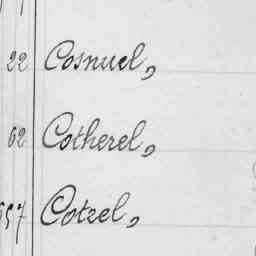 22 Cosnuel,
62 Cotherel,
657 Cotzel,